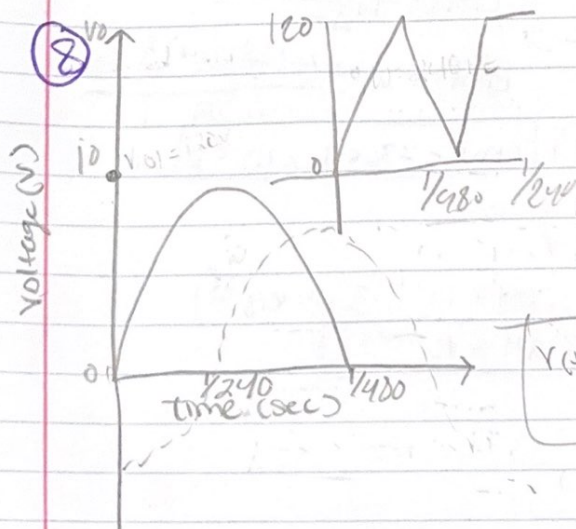 8
V0
120
10
0
1/480 1/240
Voltage (V)
0
1/240 1/480
time (sec)
V(